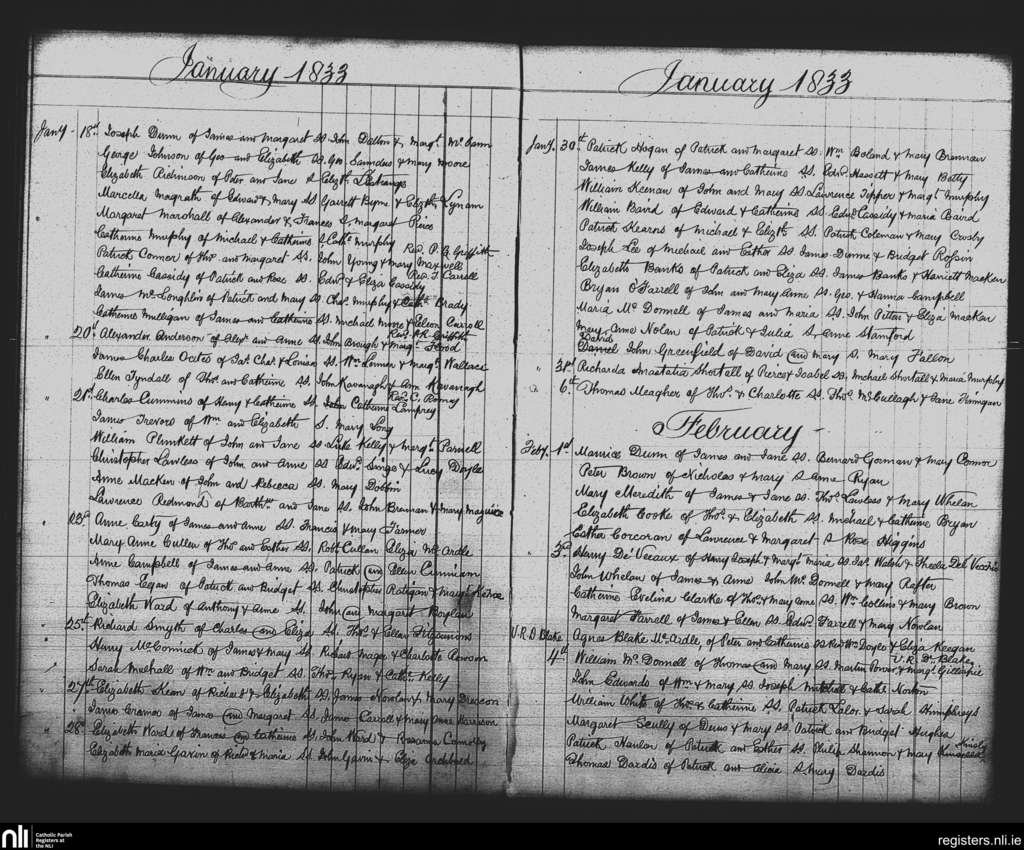 January 1833
Jany. 18th Joseph Dunn of James and Margaret SS John Dalton & Margt. McCann
George Johnson of Geo and Elizabeth SS. Geo. Saunders & Mary Moore
Elizabeth Robinson of Peter and Jane S Elizth. Lestrange
Marcella Magrath of Edward & Mary SS Garrett Byrne & Elizth. Lynam
Margaret Marshall of Alexander & Frances S. Margaret Pierce
Catherine Murphy of Michael & Catherine S Cathe. Murphy Rev. P. R. Griffith
Patrick Connor of Thos. and Margaret SS. John Young & Mary Maxwell
Catherine Cassidy of Patrick and Rose SS. Edwd. & Eliza Cassidy Rev. J. Carroll
James McLoughlin of Patrick and Mary SS Chas. Murphy & Cathe. Brady
Catherine Mulligan of James and Catherine SS. Michael Moore & Eileen Carroll
20th Alexander Anderson of Alexr. and Anne SS John Brough & Margt. Flood Rev. P.R. Griffith
James Charles Oates of Jas. Chas. & Louisa SS. Wm. Lomer & Margt. Wallace
Ellen Tyndall of Thos. and Catherine SS. John Kavanagh & Ann Kavanagh
21st Charles Cummins of Henry & Catherine SS. John Catherine Lamprey Rev. C. Roney
James Trevors of Wm. and Elizabeth S. Mary Long
William Plunkett of John and Jane SS Luke Kelly & Margt. Parnell
Christopher Lawless of John and Anne SS Edwd. Singe & Lucy Doyle
Anne Macken of John and Rebecca SS. Mary Dobbin
Lawrence Redmond of Barthw. and Jane SS. John Brennan & Mary Maguire
23d Anne Carty of James and Anne SS. Francis & Mary Farmer
Mary Anne Cullen of Thos. and Esther SS. Robt. Cullen Eliza McArdle
Anne Campbell of James and Anne SS. Patrick and Ellen Cunniam
Thomas Egan of Patrick and Bridget SS. Christopher Ratigan & Mary Pierce
Elizabeth Ward of Anthony & Anne SS. John and Margaret Boylan
25th Richard Smyth of Charles and Eliza SS. Thos. & Ellen Fitzsimons
Henry McCormick of James & Mary SS. Richard Magee & Charlotte Rowson
Sarah Meehall of Wm. and Bridget SS. Thos. Ryan & Cathe. Kelly
27th Elizabeth Kean of Richard & Elizabeth SS. James Nowlan & Mary Deacon
James Cramer of James and Margaret SS. James Carroll & Mary Anne Harrison
28th Elizabeth Ward of Francis and Catherine SS. John Ward & Rosanna Connolly
Elizabeth Maria Gavin of Richd. & Maria SS John Gavin & Eliza Archbold
January 1833
Jany. 30th Patrick Hogan of Patrick and Margaret SS. Wm. Boland & Mary Brennan
James Kelly of James and Catherine SS. Edwd. Hassett & Mary Betty
William Keenan of John and Mary SS Lawrence Tipper & Margt. Murphy
William Baird of Edward & Catherine SS. Edwd. Cassidy & Maria Baird
Patrick Kearns of Michael & Elizth. SS. Patrick Coleman & Mary Crosby
Joseph Lee of Michael and Esther SS James Dunne & Bridget Rossin
Elizabeth Banks of Patrick and Eliza SS. James Banks & Harriett Macken
Bryan O'Farrell of John and Mary Anne SS. Geo. & Hannia Campbell
Maria McDonnell of James and Maria SS. John Petter & Eliza Macken
Mary Anne Nolan of Patrick & Julia S. Anne Stamford
David
Daniel John Greenfield of David and Mary S. Mary Fallon
31st Richarda Anastatia Shortall of Pierce & Isabel SS. Michael Shortall & Maria Murphy
6th Thomas Meagher of Thos. & Charlotte SS. Thos. McCullagh & Jane Finegan
February
Feby. 1st Maurice Dunn of James and Jane SS. Bernard Gorman & Mary Connor
Peter Brown of Nicholas & Mary S Anne Ryan
Mary Meredith of James & Jane SS. Thos. Lawless & Mary Whelan
Elizabeth Cooke of Thos. & Elizabeth SS. Michael & Catherine Bryan
Esther Corcoran of Lawrence & Margaret S Rose Higgins
3d Henry De'Veaux of Henry Joseph & Margt. Maria SS. Jas. Walsh & Thecla Del Vecchio
John Whelan of James & Anne John McDonnell & Mary Rafter
Catherine Evelina Clarke of Thos. & Mary Anne SS. Wm. Collins & Mary Brown
Margaret Farrell of James & Ellen SS. Edwd. Farrell & Mary Nowlan
V.R.D. Blake Agnes Blake McArdle, of Peter and Catherine SS Revd. Wm. Doyle & Eliza Keegan
V.R. Dr. Blake
4th William McDonnell of Thomas and Mary SS. Martin Power & Margt. Gillespie
John Edwards of Wm. & Mary SS. Joseph Mitchell & Cathe. Norton
William White of Thos. & Catherine SS. Patrick Lalor & Sarah Humphreys
Margaret Scully of Denis & Mary SS. Patrick and Bridget Hughes
Patrick Hanlon of Patrick and Esther SS. Philip Shannon & Mary Kinsella
Thomas Dardis of Patrick and Alicia S. Mary Dardis
nli Catholic Parish Registers at the NLI
registers.nli.ie